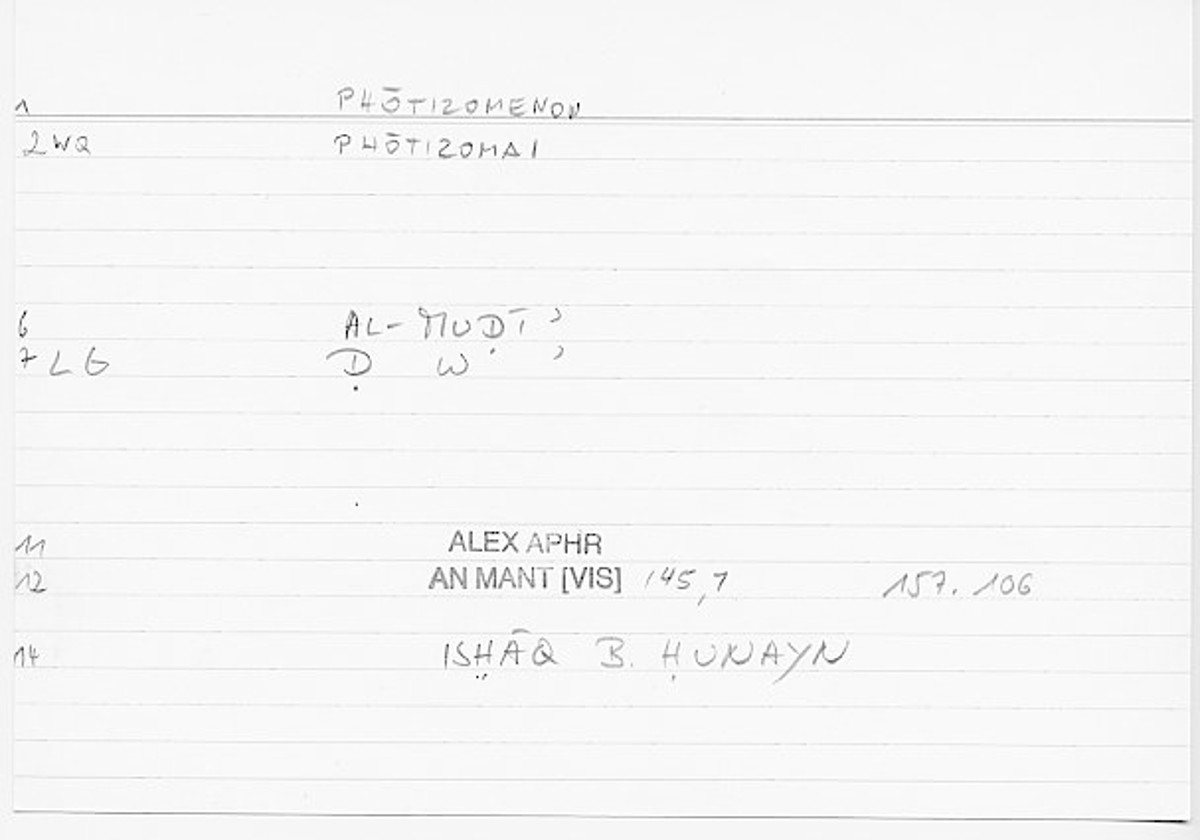 1 PHŌTIZOMENON
2 WQ PHŌTIZOMAI
6 AL-MUḌĪʾ
7 LG Ḍ W ʾ
11 ALEX APHR
12 AN MANT [VIS] 145,7 157.106
14 ISḤĀQ B. ḤUNAYN